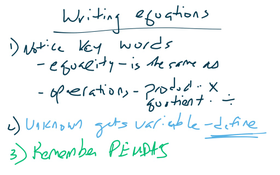 Writing equations
1) Notice key words
- equality - is the same as
- operations - product: X
quotient: ÷
2) Unknown gets variable - define
3) Remember PEMDAS